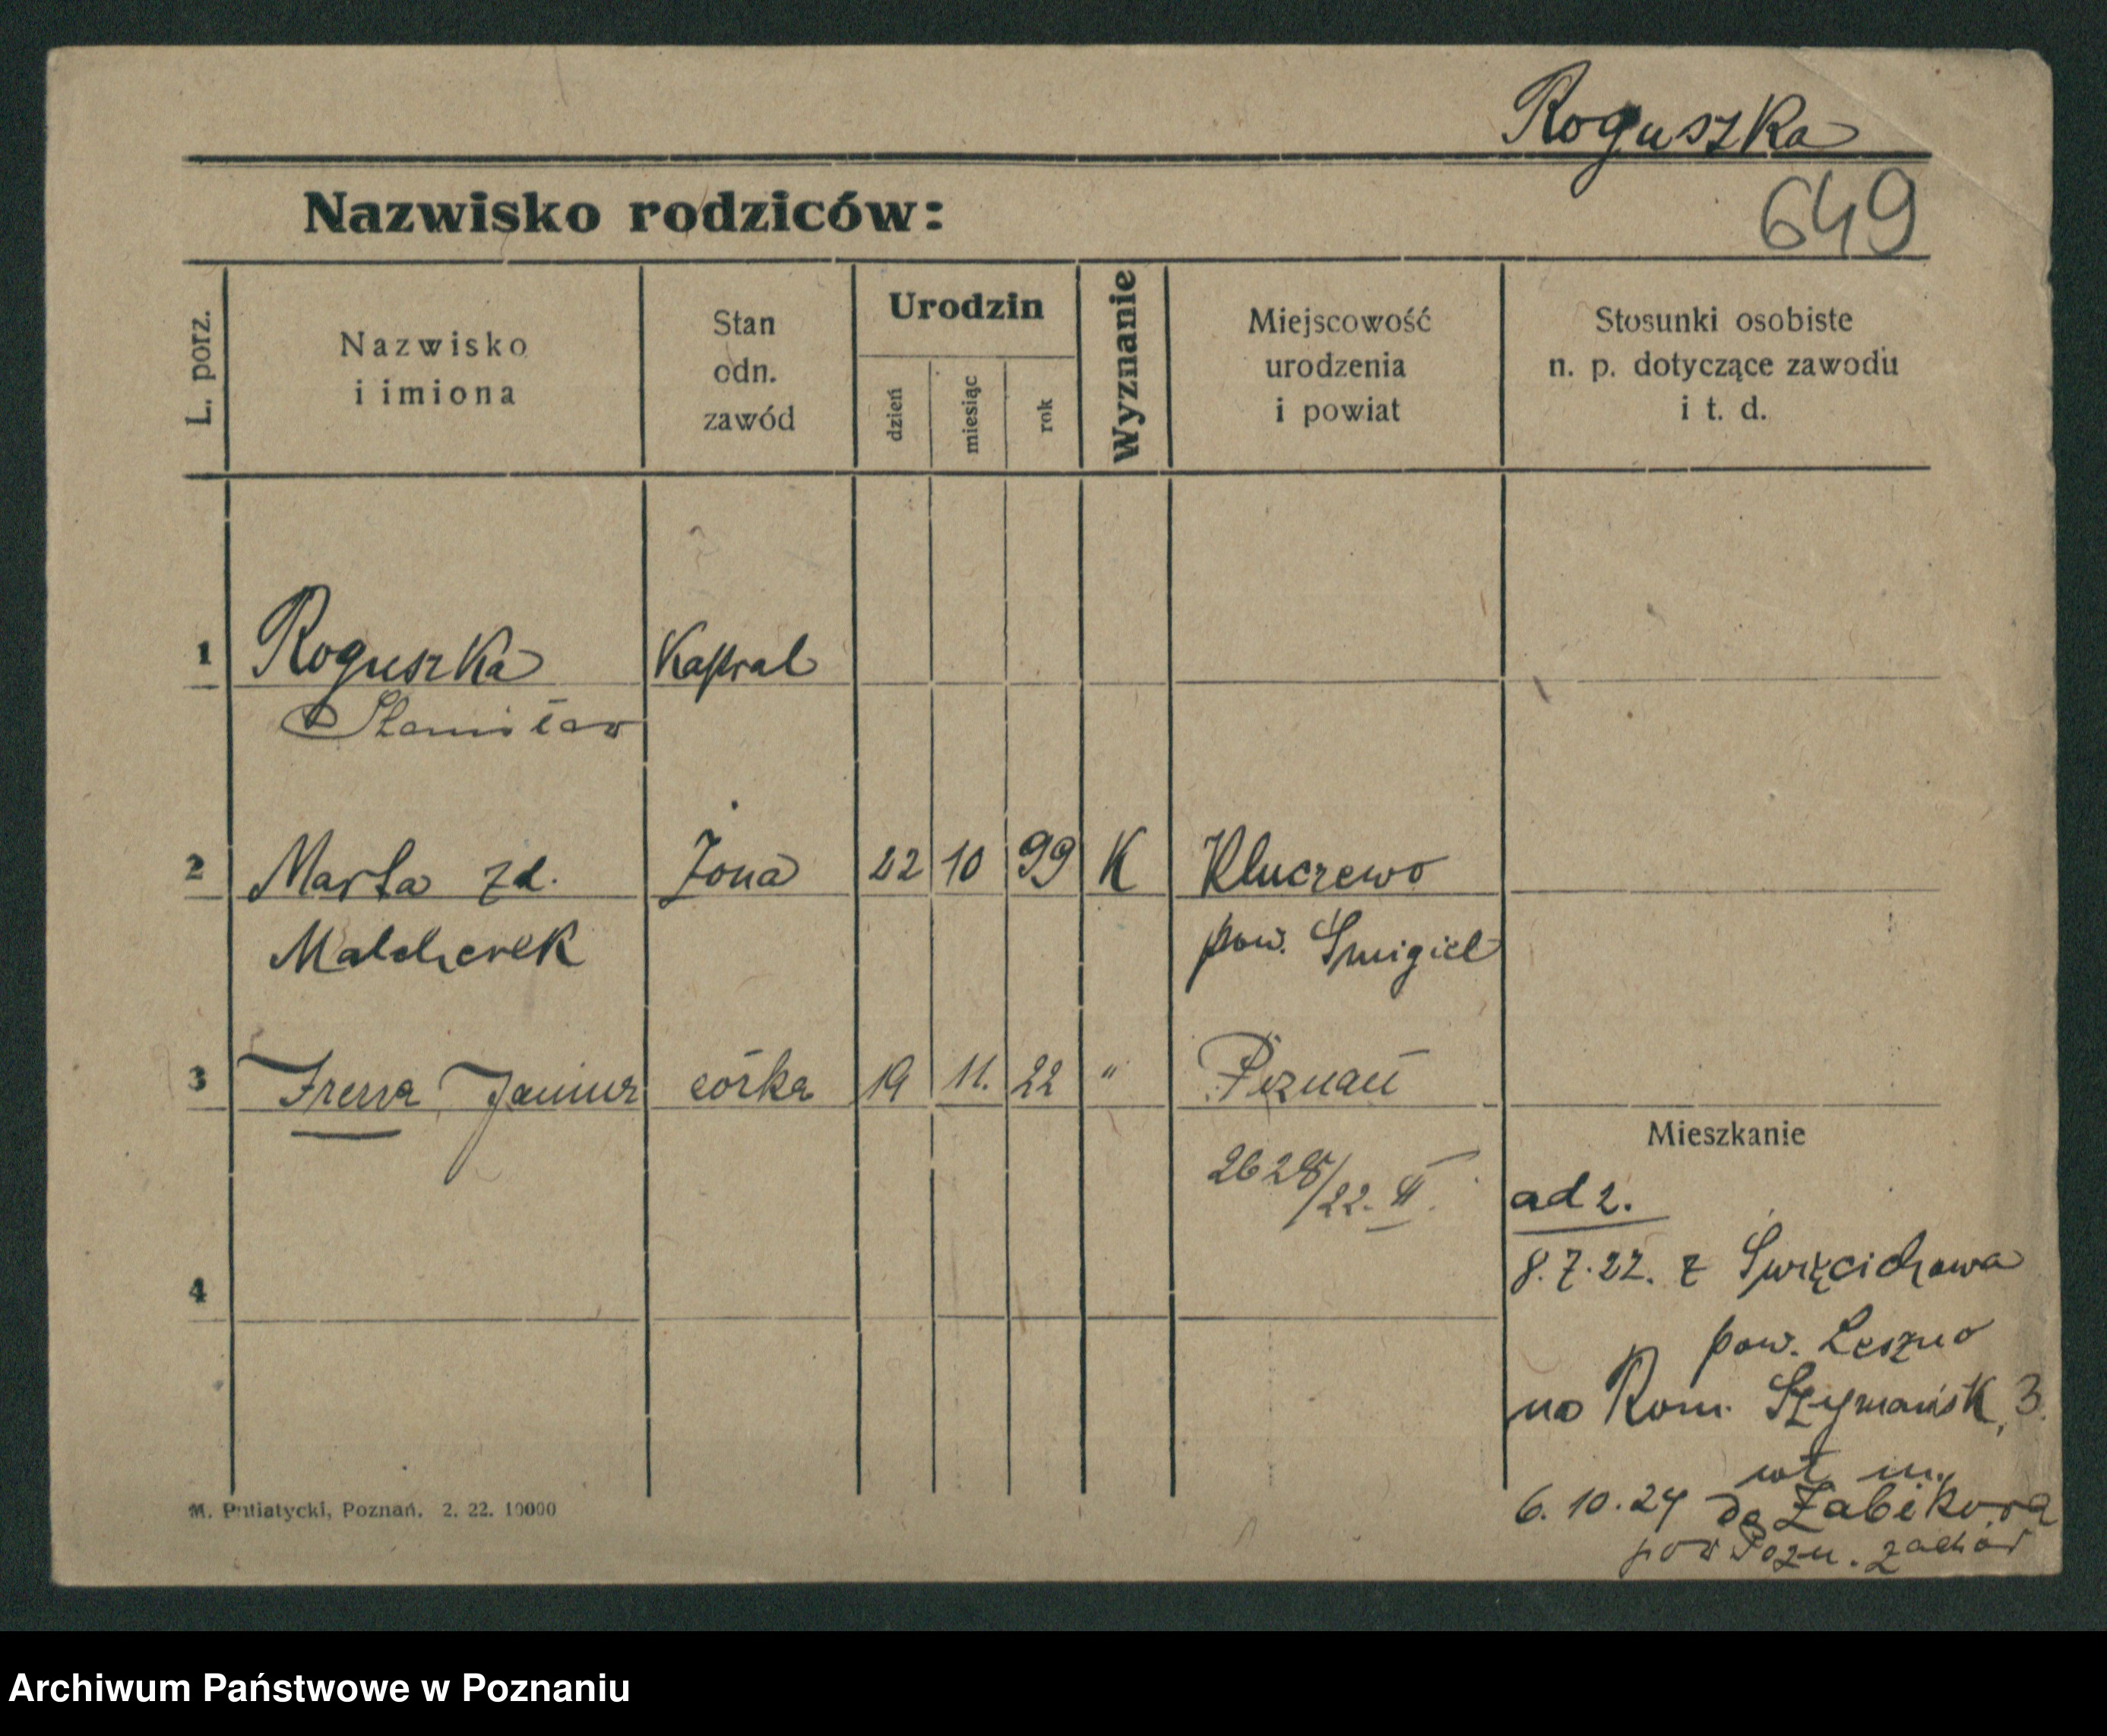 Roguszka
649
Nazwisko rodziców:
L. porz.
Nazwisko
i imiona
Stan
odn.
zawód
Urodzin
dzień
miesiąc
rok
Wyznanie
Miejscowość
urodzenia
i powiat
Stosunki osobiste
n. p. dotyczące zawodu
i t. d.
1 Roguszka Kapral
Stanisław
2 Marta zd. Żona 22 10 99 K Kluczewo
Malcherek pow. Śmigiel
3 Irena Janina córka 19 11. 22 " Poznań
Mieszkanie
2628/22. II.
ad 2.
8.7.22. z Święcichowa
4
pow. Leszno
na Rom. Szymańsk. 3.
6.10.24 do Żabikowa
pow Pozn. zachód
M. Putiatycki, Poznań. 2. 22. 10000
Archiwum Państwowe w Poznaniu